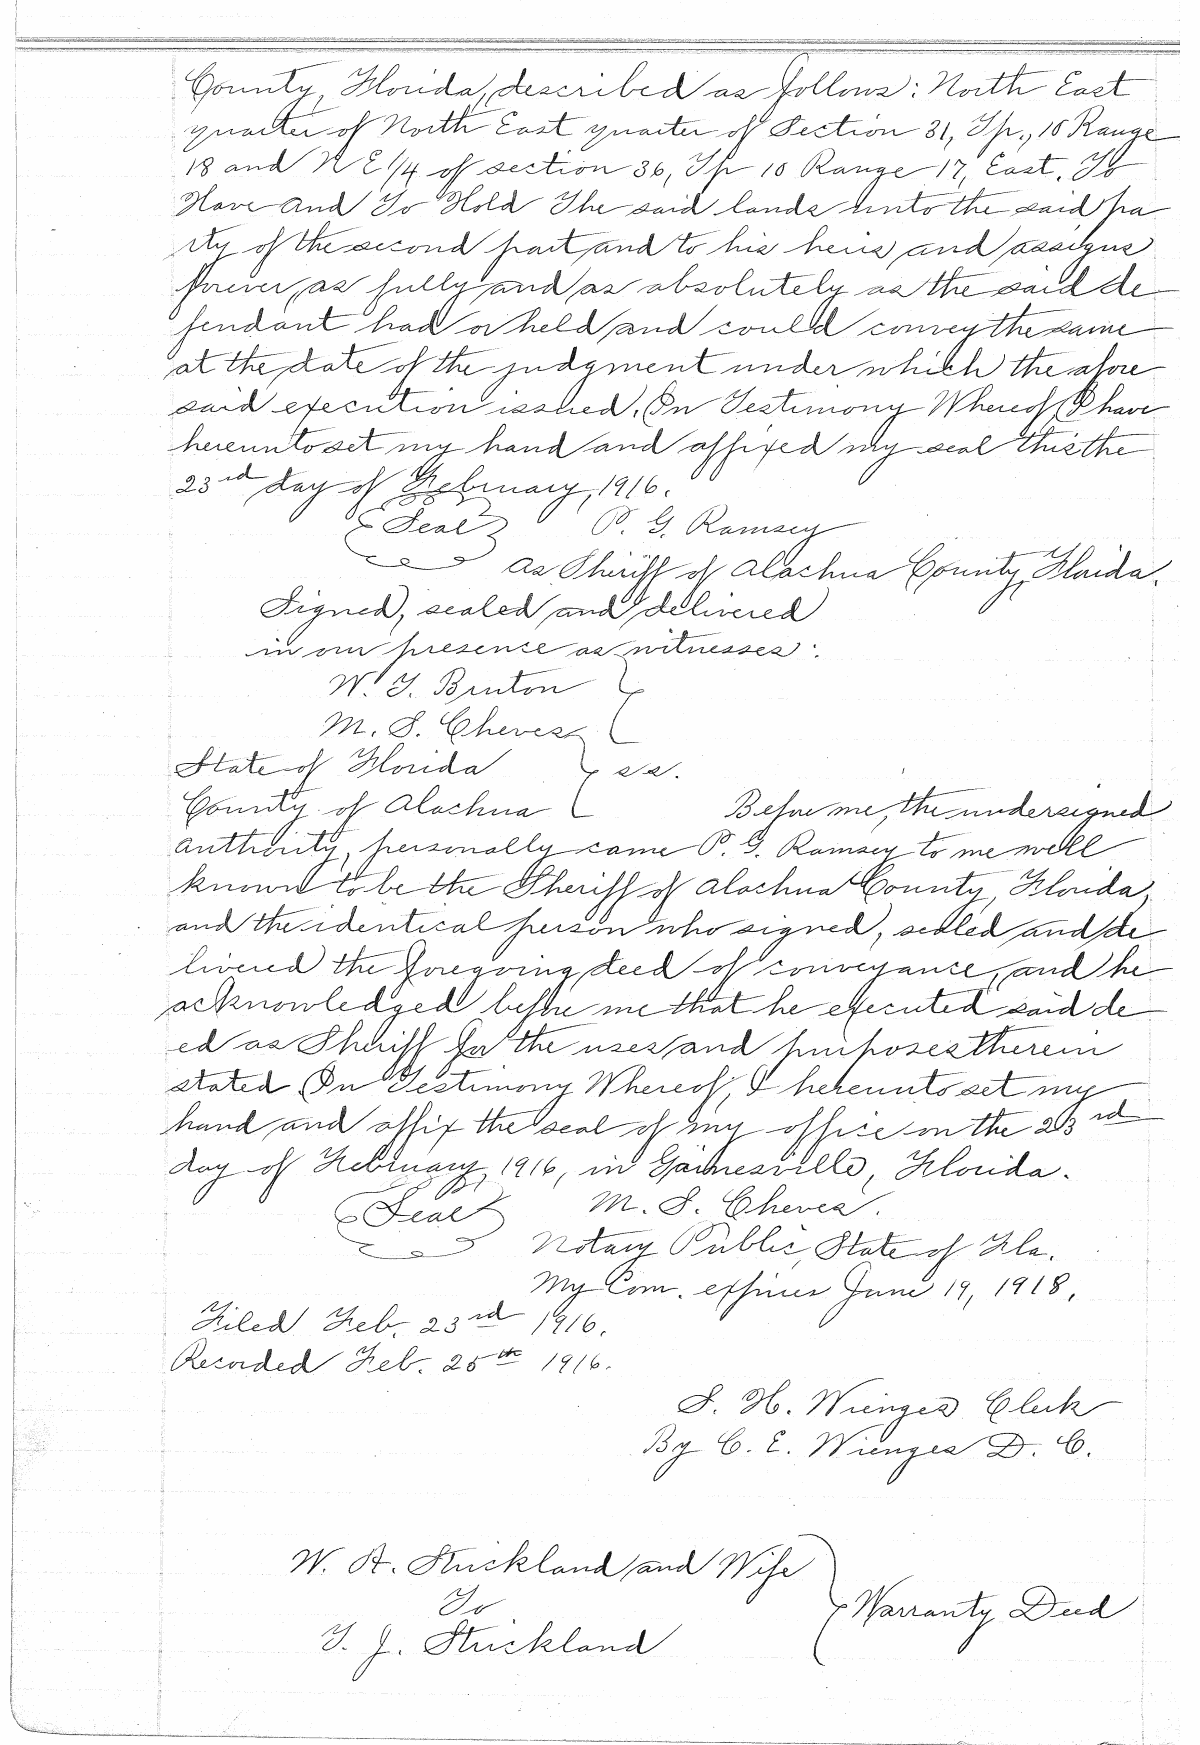 County, Florida, described as follows: North East
quarter of North East quarter of Section 31, Tp., 10 Range
18 and N E 1/4 of section 36, Tp 10 Range 17, East. To
Have and To Hold The said lands unto the said pa
rty of the second part, and to his heirs and assigns
forever, as fully and as absolutely as the said de
fendant had or held and could convey the same
at the date of the judgment under which the afore
said execution issued. In Testimony Whereof, I have
hereunto set my hand and affixed my seal this the
23rd day of February, 1916.
Seal P. G. Ramsey
As Sheriff of Alachua County, Florida.
Signed, sealed and delivered
in our presence as witnesses:
W. T. Bruton
M. S. Cheves
State of Florida ss.
County of Alachua Before me, the undersigned
authority, personally came P. G. Ramsey to me well
known to be the Sheriff of Alachua County, Florida,
and the identical person who signed, sealed and de
livered the foregoing deed of conveyance, and he
acknowledged before me that he executed said de
ed as Sheriff for the uses and purposes therein
stated In Testimony Whereof, I hereunto set my
hand and affix the seal of my office on the 23rd
day of February, 1916, in Gainesville, Florida.
Seal M. S. Cheves.
Notary Public, State of Fla.
My Com. expires June 19, 1918.
Filed Feb. 23rd 1916.
Recorded Feb. 25th 1916.
S. H. Wienges Clerk
By C. E. Wienges D. C.
W. A. Strickland and Wife
To Warranty Deed
T. J. Strickland